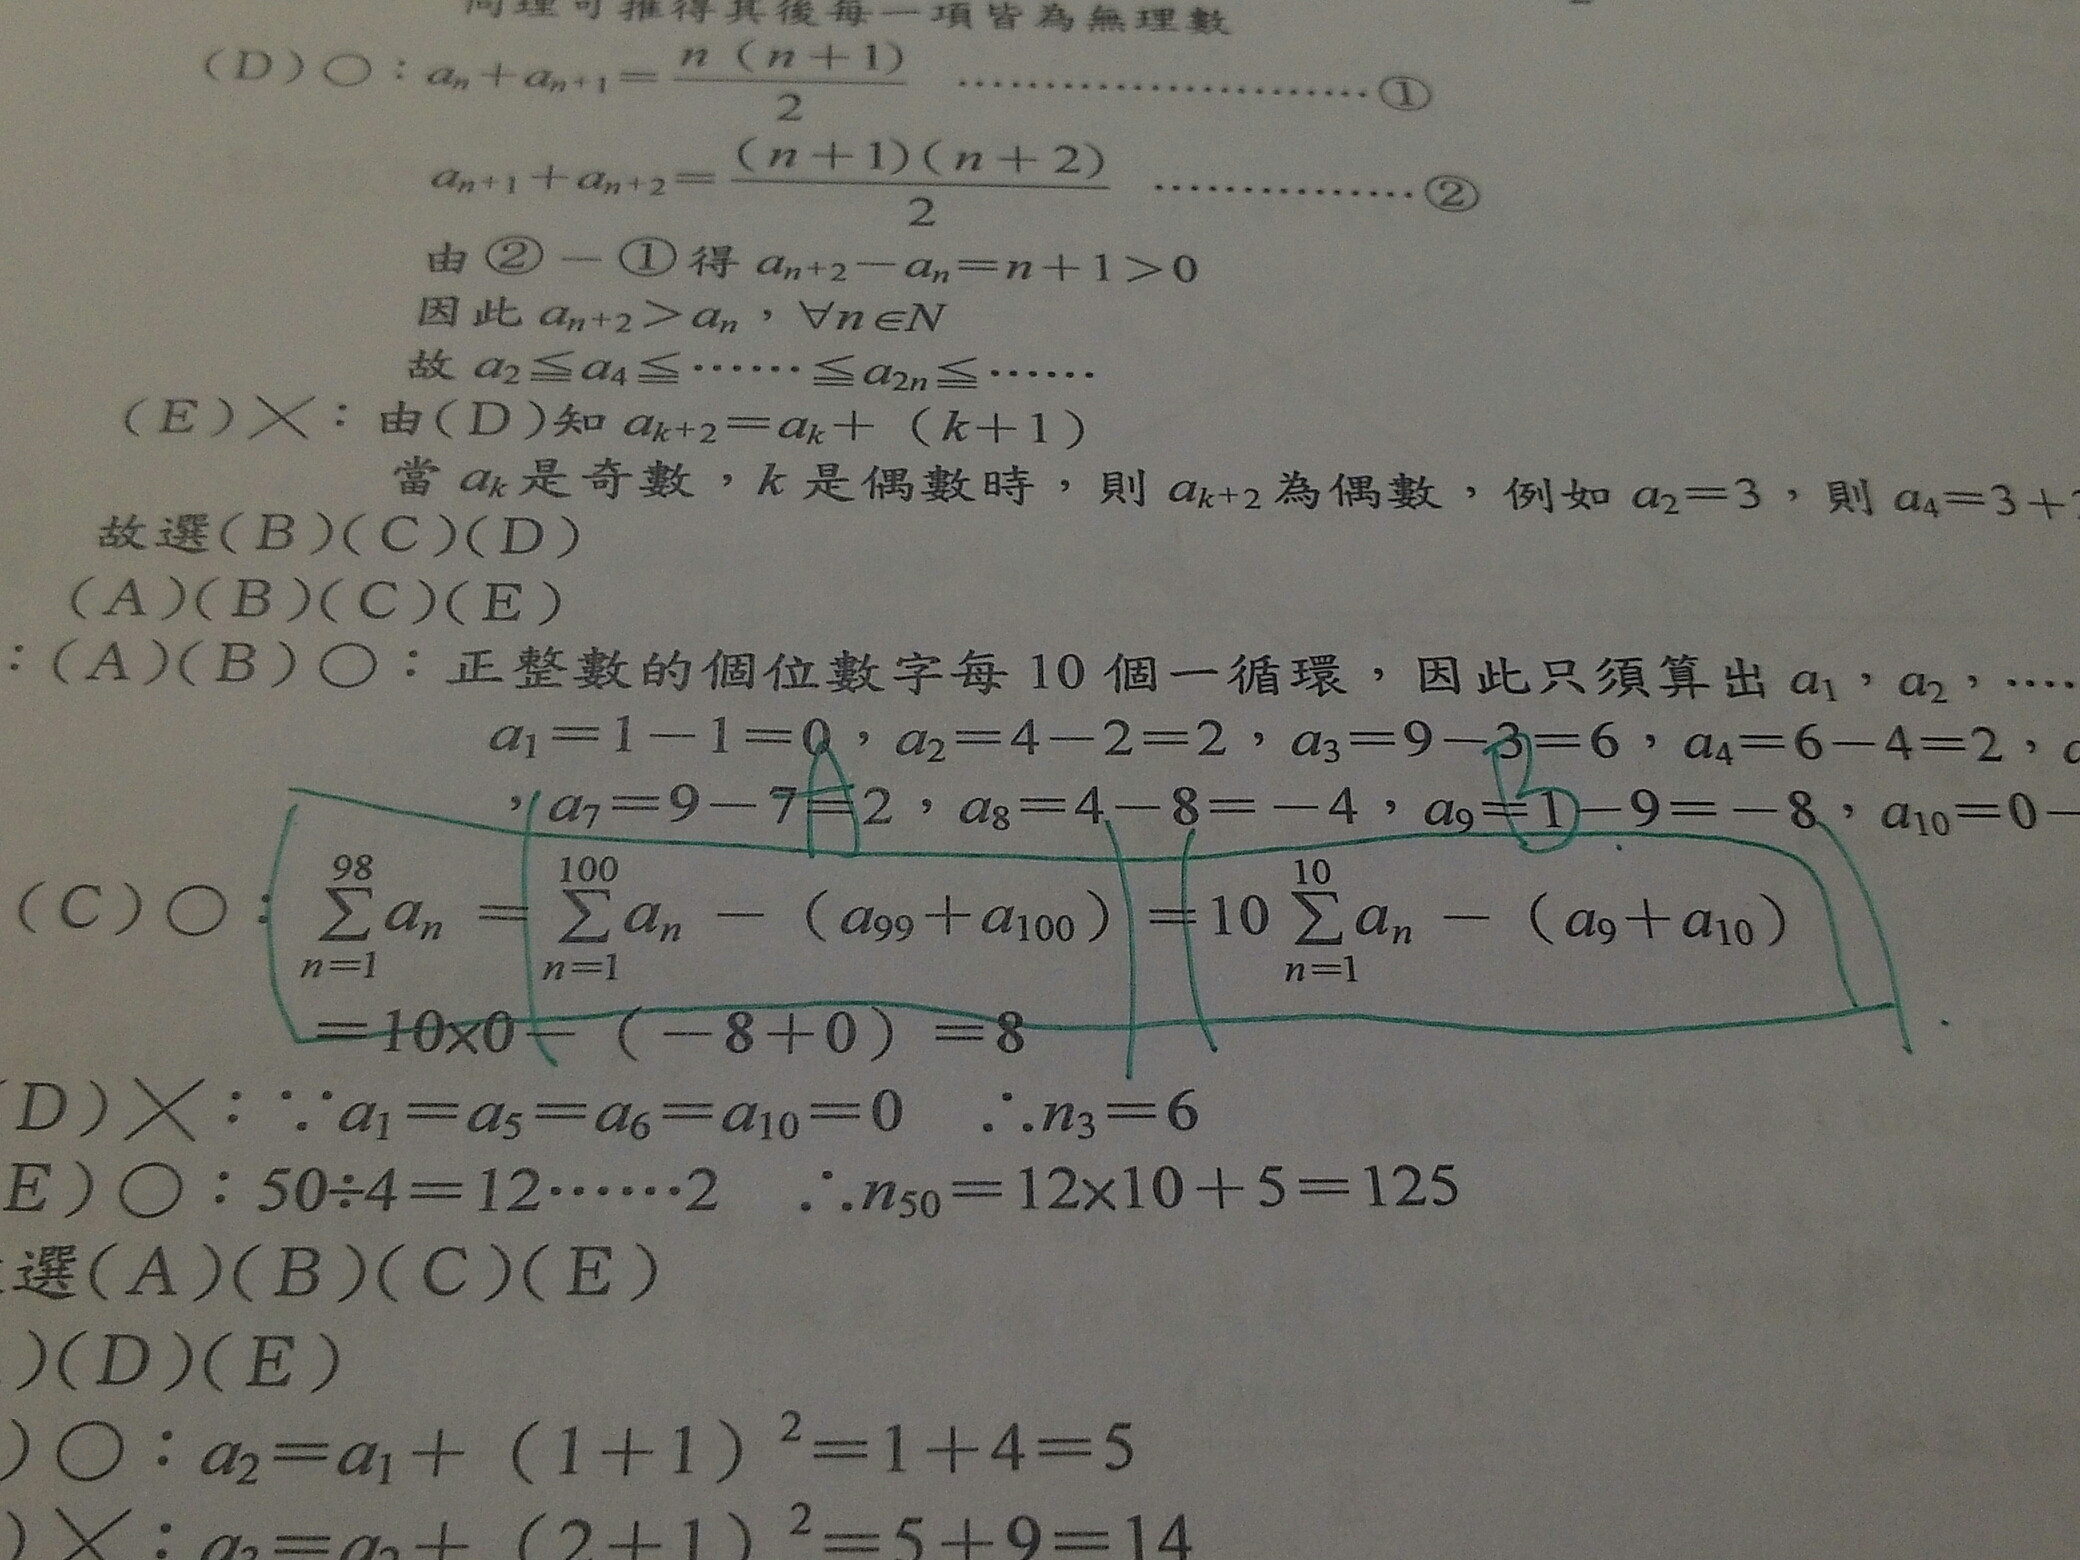 同理可推得其後每一項皆為無理數
(D)○：aₙ＋aₙ₊₁＝n（n＋1）/2 ……………………①
aₙ₊₁＋aₙ₊₂＝(n＋1)(n＋2)/2 ……………②
由②－①得 aₙ₊₂－aₙ＝n＋1＞0
因此 aₙ₊₂＞aₙ，∀n∈N
故 a₂≦a₄≦……≦a₂ₙ≦……
(E)╳：由(D)知 aₖ₊₂＝aₖ＋（k＋1）
當 aₖ是奇數，k 是偶數時，則 aₖ₊₂為偶數，例如 a₂＝3，則 a₄＝3＋
故選(B)(C)(D)
(A)(B)(C)(E)
：(A)(B)○：正整數的個位數字每 10 個一循環，因此只須算出 a₁，a₂，……
a₁＝1－1＝0，a₂＝4－2＝2，a₃＝9－3＝6，a₄＝6－4＝2，
，a₇＝9－7＝2，a₈＝4－8＝－4，a₉＝1－9＝－8，a₁₀＝0－
A B
(C)○：∑_{n=1}^{98} aₙ＝∑_{n=1}^{100} aₙ－（a₉₉＋a₁₀₀）＝10∑_{n=1}^{10} aₙ－（a₉＋a₁₀）
＝10×0－（－8＋0）＝8
(D)╳：∵a₁＝a₅＝a₆＝a₁₀＝0　∴n₃＝6
E)○：50÷4＝12……2　∴n₅₀＝12×10＋5＝125
選(A)(B)(C)(E)
)(D)(E)
)○：a₂＝a₁＋（1＋1）²＝1＋4＝5
)╳：a₃＝a₂＋（2＋1）²＝5＋9＝14